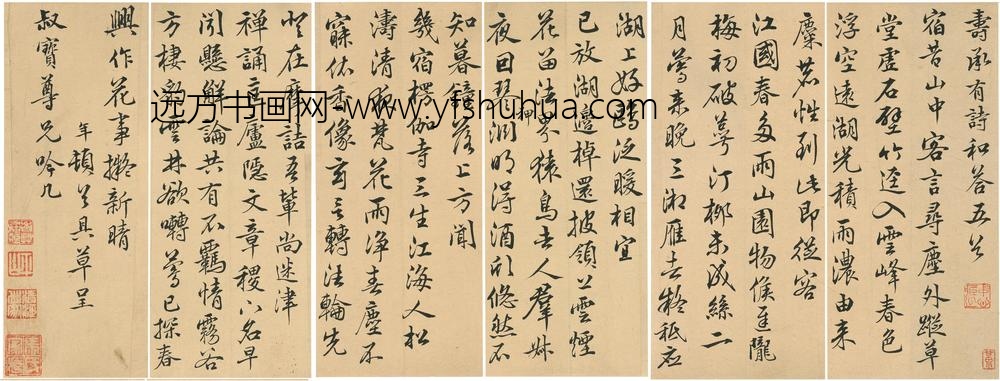 壽承有詩和答五首
宿昔山中客言尋塵外蹤草
堂虛石壁竹逕入雲峰春色
浮空遠湖光積雨濃由來
麋鹿性到此即從容
江國春多雨山園物候遲隴
梅初破萼汀柳未成絲二
月鶯來晚三湘雁去
湖上好鷗泛暖相宜
已放湖邊棹還披領上雲煙
花留法界猿鳥去人群
夜回琴澗明得酒
悠然不
知暮鐘落上方聞
幾宿楞伽寺三生江海人松
濤清夜梵花雨淨春塵不
寐依香像玄言轉法輪先
在摩詰吾輩尚迷津
禪誦意廬隱文章稷下名早
聞懸解論共有不羈情霧谷
方棲雲林欲囀鶯已探春
興作花事擬新晴
年頓首具草呈
叔寶尊兄吟几
远万书画网-www.yfshuhua.com